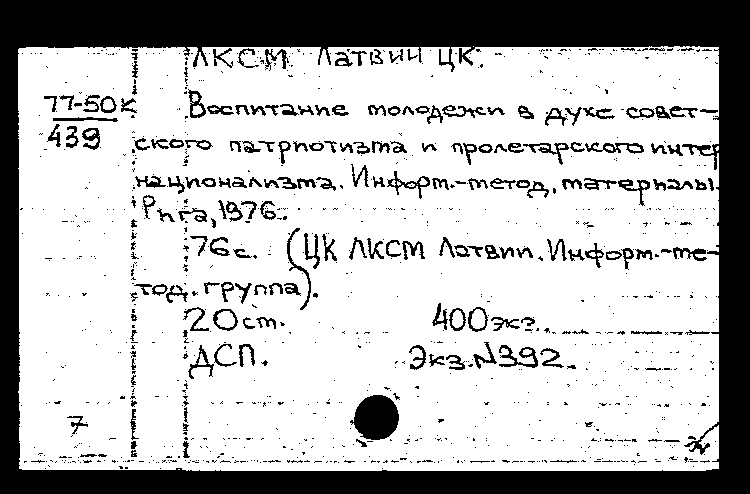 ЛКСМ Латвии ЦК.
77-50К
439
Воспитание молодежи в духе совет-
ского патриотизма и пролетарского интер
национализма. Информ.-метод. материалы.
Рига, 1976.
76с. (ЦК ЛКСМ Латвии. Информ.-ме-
тод. группа).
20 ст. 400 экз.
ДСП. Экз. N392.
7